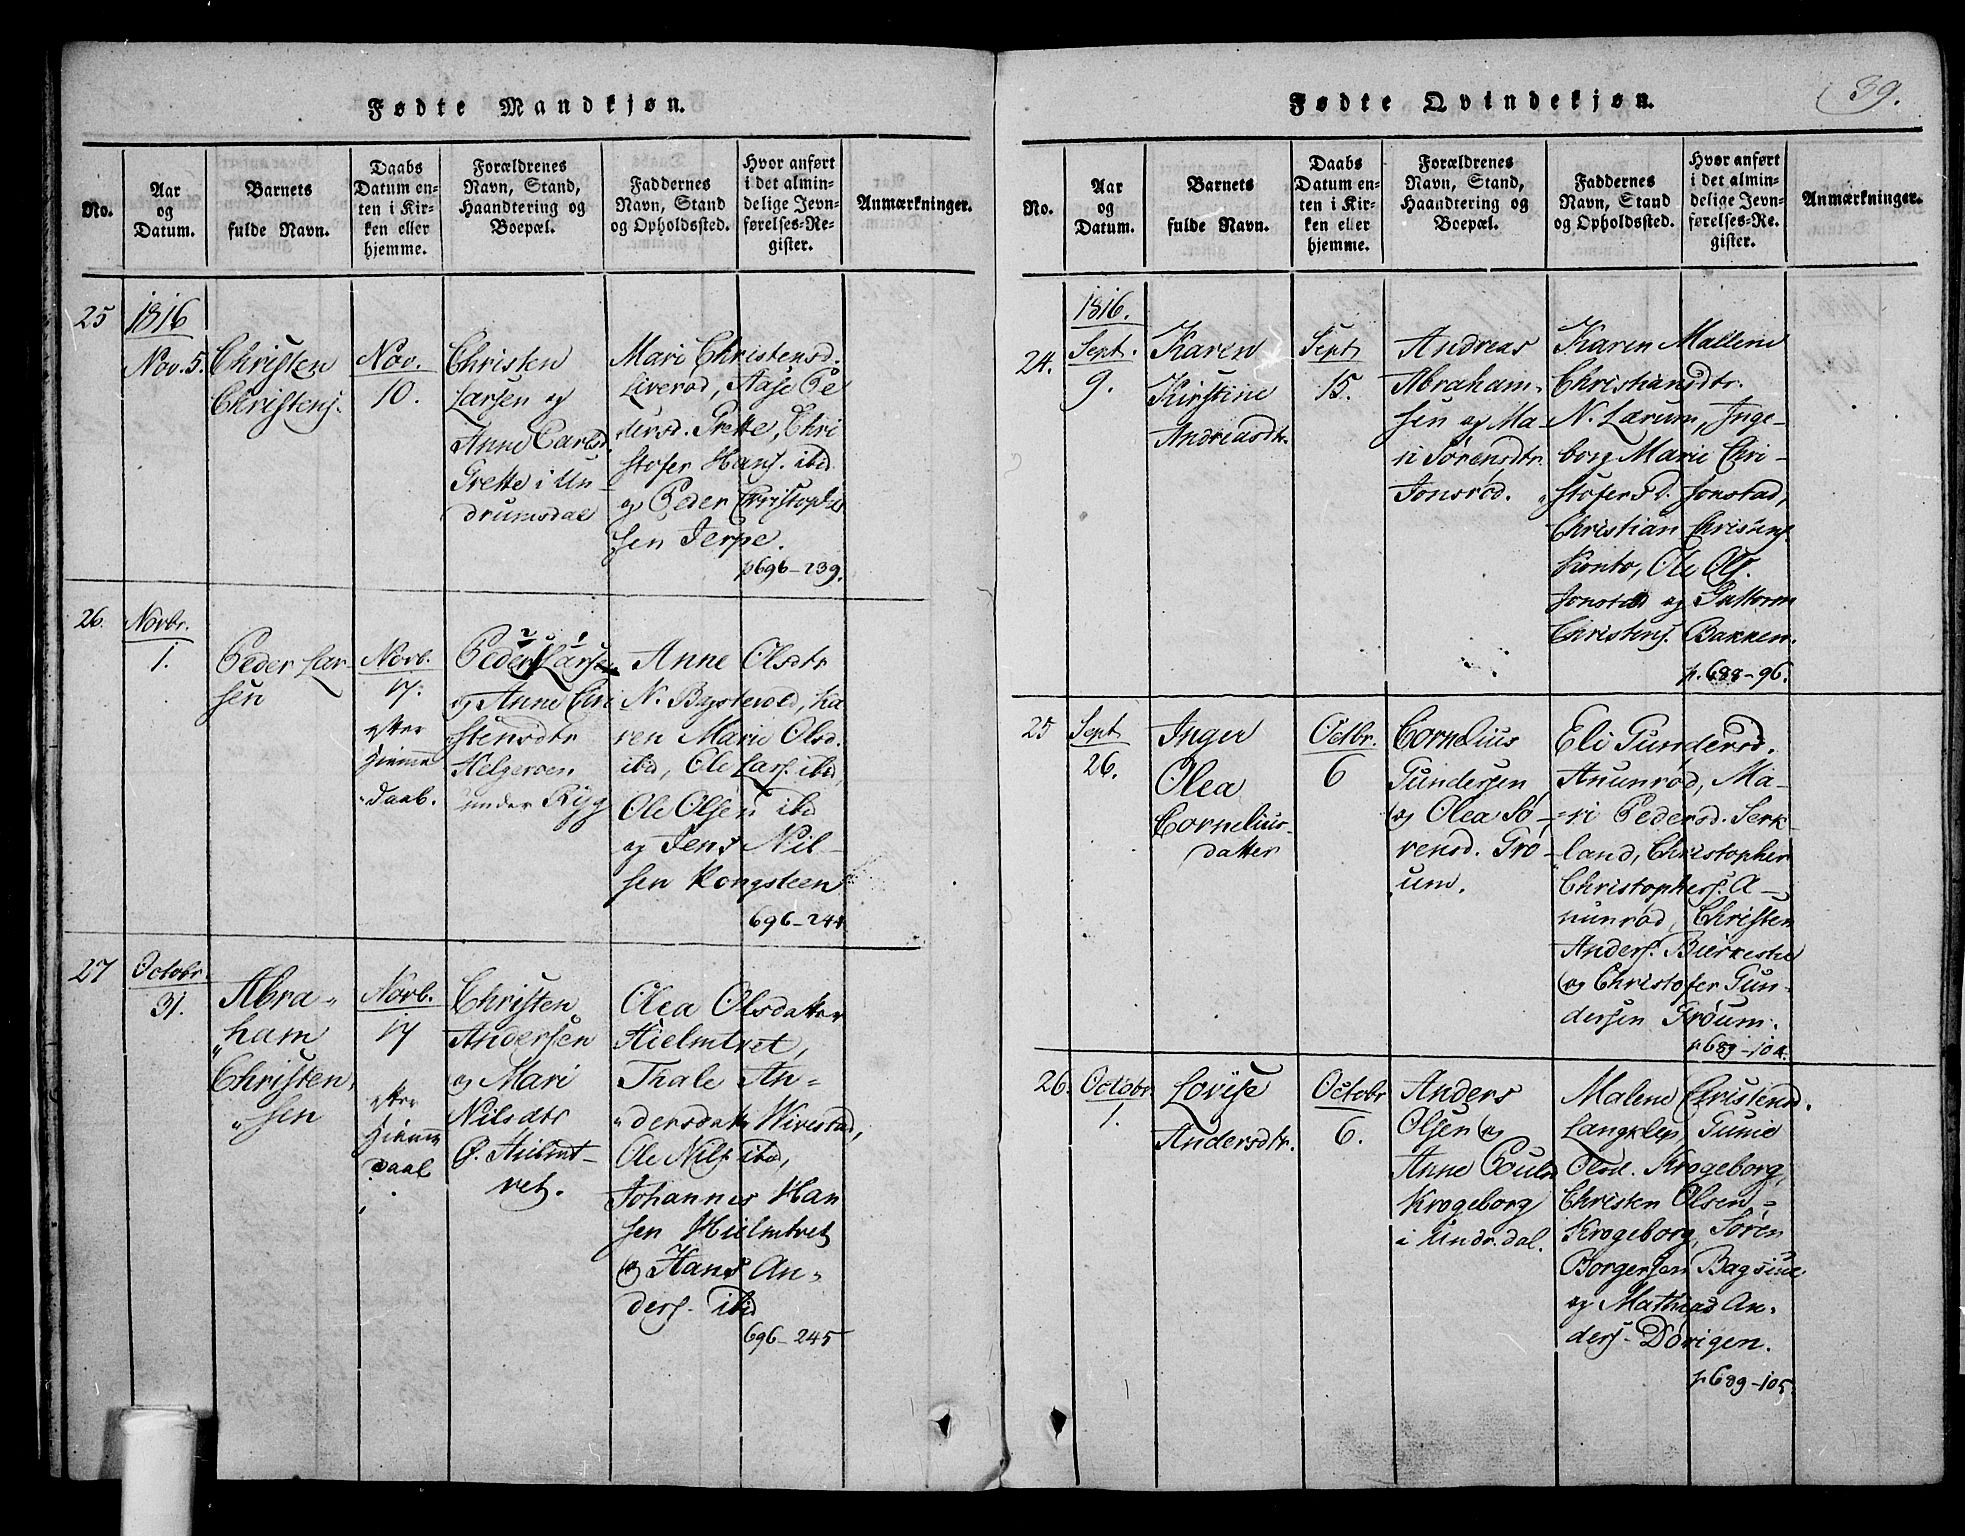 Fødte Mandkjøn.
No.
Aar
og
Datum.
Barnets
fulde Navn.
Daabs
Datum en-
ten i Kir-
ken eller
hjemme.
Forældrenes
Navn, Stand,
Haandtering og
Boepæl.
Faddernes
Navn, Stand
og Opholdssted.
Hvor anført
i det almin-
delige Jevn-
førelses-Re-
gister.
Anmærkninger.
25
1816
Nov. 5.
Christen
Christens.
Nov.
10.
Christen
Larsen og
Anne Carlsd.
Grette i Un-
drumsdal
Mari Christensd.
Liverød, Aase Pe
dersd. Grette, Chri
stofer Hans. ibd.
og Peder Christoph
sen Jerpe.
p696-239.
26.
Novbr.
1.
Peder Lar
sen
Novb.
17.
efter
Hiemme
daab.
2 1
Peder Larsen
og Anne Chri
stensdtr
Helgeroen
under Ryg
Anne Olsdtr
N. Bøystevold, Ka
ren Marie Olsd.
ibd, Ole Lars. ibd,
Ole Olsen ibd
og Jens Nil-
sen Kongsteen
696-244
27
Octobr.
31.
Abra-
ham
Christen-
sen
Novb.
17
efter
Hiemme
daab
Christen
Andersen
og Mari
Nilsdtr
Ø. Hielmt-
vet.
Olea Olsdatter
Hielmtvet,
Thale An-
dersdatr Wivestad,
Ole Nils. ibd,
Johannes Han
sen Hielmtvet
og Hans An-
ders. ibd
696-245
Fødte Qvindekjøn.
39.
No.
Aar
og
Datum.
Barnets
fulde Navn.
Daabs
Datum en-
ten i Kir-
ken eller
hjemme.
Forældrenes
Navn, Stand,
Haandtering og
Boepæl.
Faddernes
Navn, Stand
og Opholdssted.
Hvor anført
i det almin-
delige Jevn-
førelses-Re-
gister.
Anmærkninger.
24.
1816.
Sept.
9.
Karen
Kirstine
Andreasdtr.
Sept
15.
Andreas
Abraham-
sen og Ma-
ri Sørensdtr.
Jonsrød.
Karen Mallene
Christiansdtr.
N. Lærum, Inge-
borg Marie Chri-
stofersd. Jonstad,
Christian Chrisens.
Ole Ols.
Jonstad og Guttorm
Christens. Bakken.
p. 688-96.
25
Sept
26.
Inger
Olea
Cornelius-
datter
Octbr.
6
Cornelius
Gundersen
og Olea Sø-
rensd. Grø-
um.
Eli Gundersd.
Anunrød, Ma-
ri Pedersd. Serk-
land, Christopher
Christophers. A-
nunrød, Christen
Anders. Bierkestie
og Christofer Gun-
dersen Grøum.
p689-104.
26.
Octobr
1.
Lovise
Andersdtr.
Octobr
6.
Anders
Olsen og
Anne Poulsd
Krogeborg
i Undr.dal.
Malene Christensd.
Langklep, Gunie
Olsd. Krogeborg,
Christen Olsen
Krogeborg, Søren
Borgersen Bagsiue
og Mathias An-
ders. Dørigen.
p689-105.